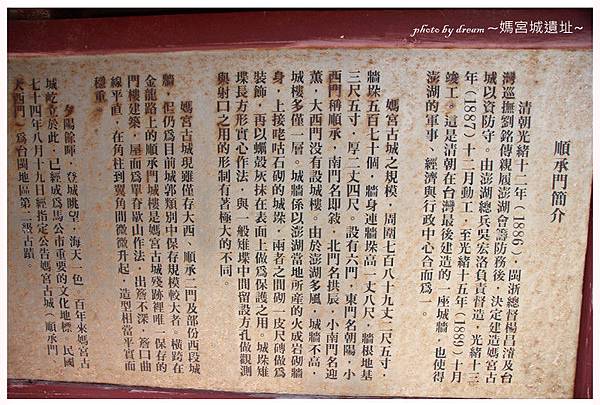 photo by dream ~媽宮城遺址~
順承門簡介
清朝光緒十二年（1886），閩浙總督楊昌濬及台
灣巡撫劉銘傳親履澎湖會籌防務後，決定建造媽宮古
城以資防守。由澎湖總兵吳宏洛負責督造，光緒十三
年（1887）十二月動工，至光緒十五年（1889）十月
竣工。這是清朝在台灣最後建造的一座城牆，也使得
澎湖的軍事、經濟與行政中心合而為一。
媽宮古城之規模，周圍七百八十九丈二尺五寸，
牆垛五百七十個，牆身連牆垛高一丈八尺，牆根地基
三尺五寸，厚二丈四尺。設有六門，東門名朝陽，小
西門稱順承，南門名即敍，北門名拱辰，小南門名迎
薰，大西門沒有設城樓。由於澎湖多風，城牆不高，
城樓多僅一層。城牆係以澎湖當地所產的火成岩砌牆
身，上接咾咕石砌的城垛，兩者之間砌一皮尺磚做為
裝飾，再以蠣殼灰抹在表面上做為保護之用。城垛雉
堞長方形實心作法，與一般雉堞中間留設方孔做觀測
與射口之用的形制有著極大的不同。
媽宮古城現雖僅存大西、順承二門及部份西段城
牆，但仍為目前城郭類別中保存規模較大者。橫跨在
金龍路上的順承門城樓是媽宮古城殘跡裡唯一保存的
門樓建築，屋面為單脊歇山作法，出簷不深，簷口曲
線平直，在角柱到翼角間微微升起，造型相當平實而
穩重。
夕陽餘暉，登城眺望，海天一色，百年來媽宮古
城屹立於此，已經成為馬公市重要的文化地標，民國
七十四年八月十九日經指定公告媽宮古城（順承門、
大西門）為台閩地區第二級古蹟。